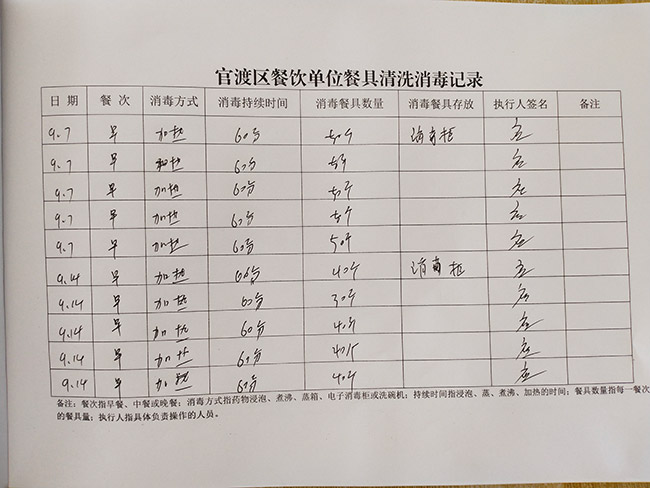 官渡区餐饮单位餐具清洗消毒记录
日期 餐次 消毒方式 消毒持续时间 消毒餐具数量 消毒餐具存放 执行人签名 备注
9.7 早 加热 60分 50个 消毒柜
9.7 早 加热 60分
9.7 早 加热 60分 50个
9.7 早 加热 60分
9.7 早 加热 60分 50个
9.14 早 加热 60分 40个 消毒柜
9.14 早 加热 60分 30个
9.14 早 加热 60分 40个
9.14 早 加热 60分 40个
9.14 早 加热 60分 40个
备注：餐次指早餐、中餐或晚餐；消毒方式指药物浸泡、煮沸、蒸箱、电子消毒柜或洗碗机；持续时间指浸泡、蒸、煮沸、加热的时间；餐具数量指每一餐次
的餐具量；执行人指具体负责操作的人员。